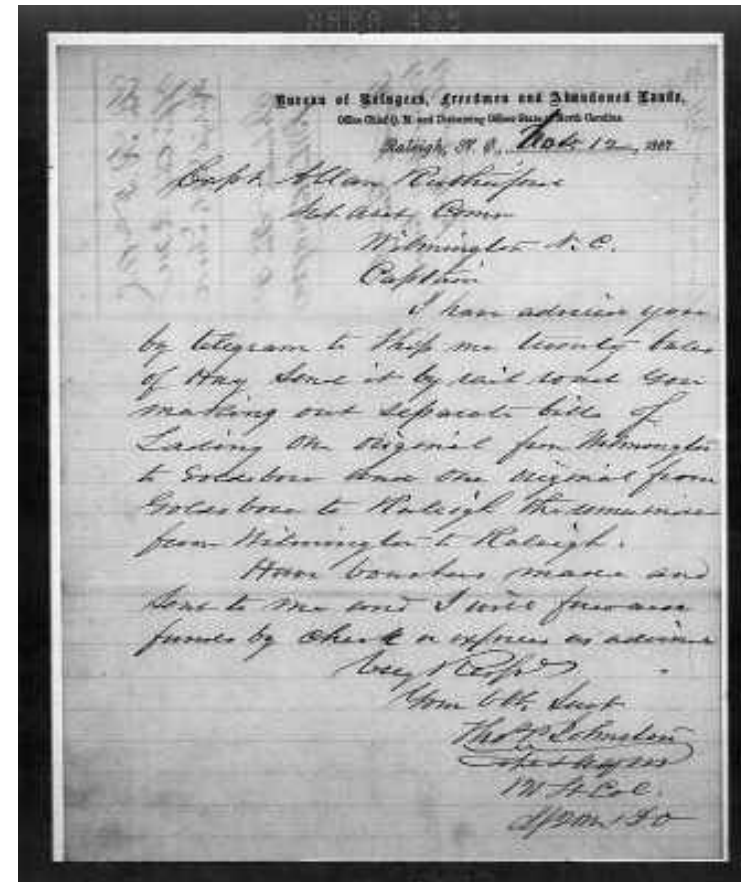 NARA
Bureau of Refugees, Freedmen and Abandoned Lands,
Office Chief Q. M. and Disbursing Officer State of North Carolina
Raleigh, N. C., 12, 1867
Capt Allan Rutherford
Comr
Wilmington N. C.
Captain
I have advised you
by telegram to Ship me twenty bales
of Hay Send it by rail road
making out Separate bills of
Lading One Original from Wilmington
to Goldsboro and One Original from
Goldsboro to Raleigh
from Wilmington to Raleigh.
Have vouchers made and
Sent to me and I will forward
funds by Check or express as advised
Very Respy
Your Obt Servt
Thos P Johnston
Lt Col